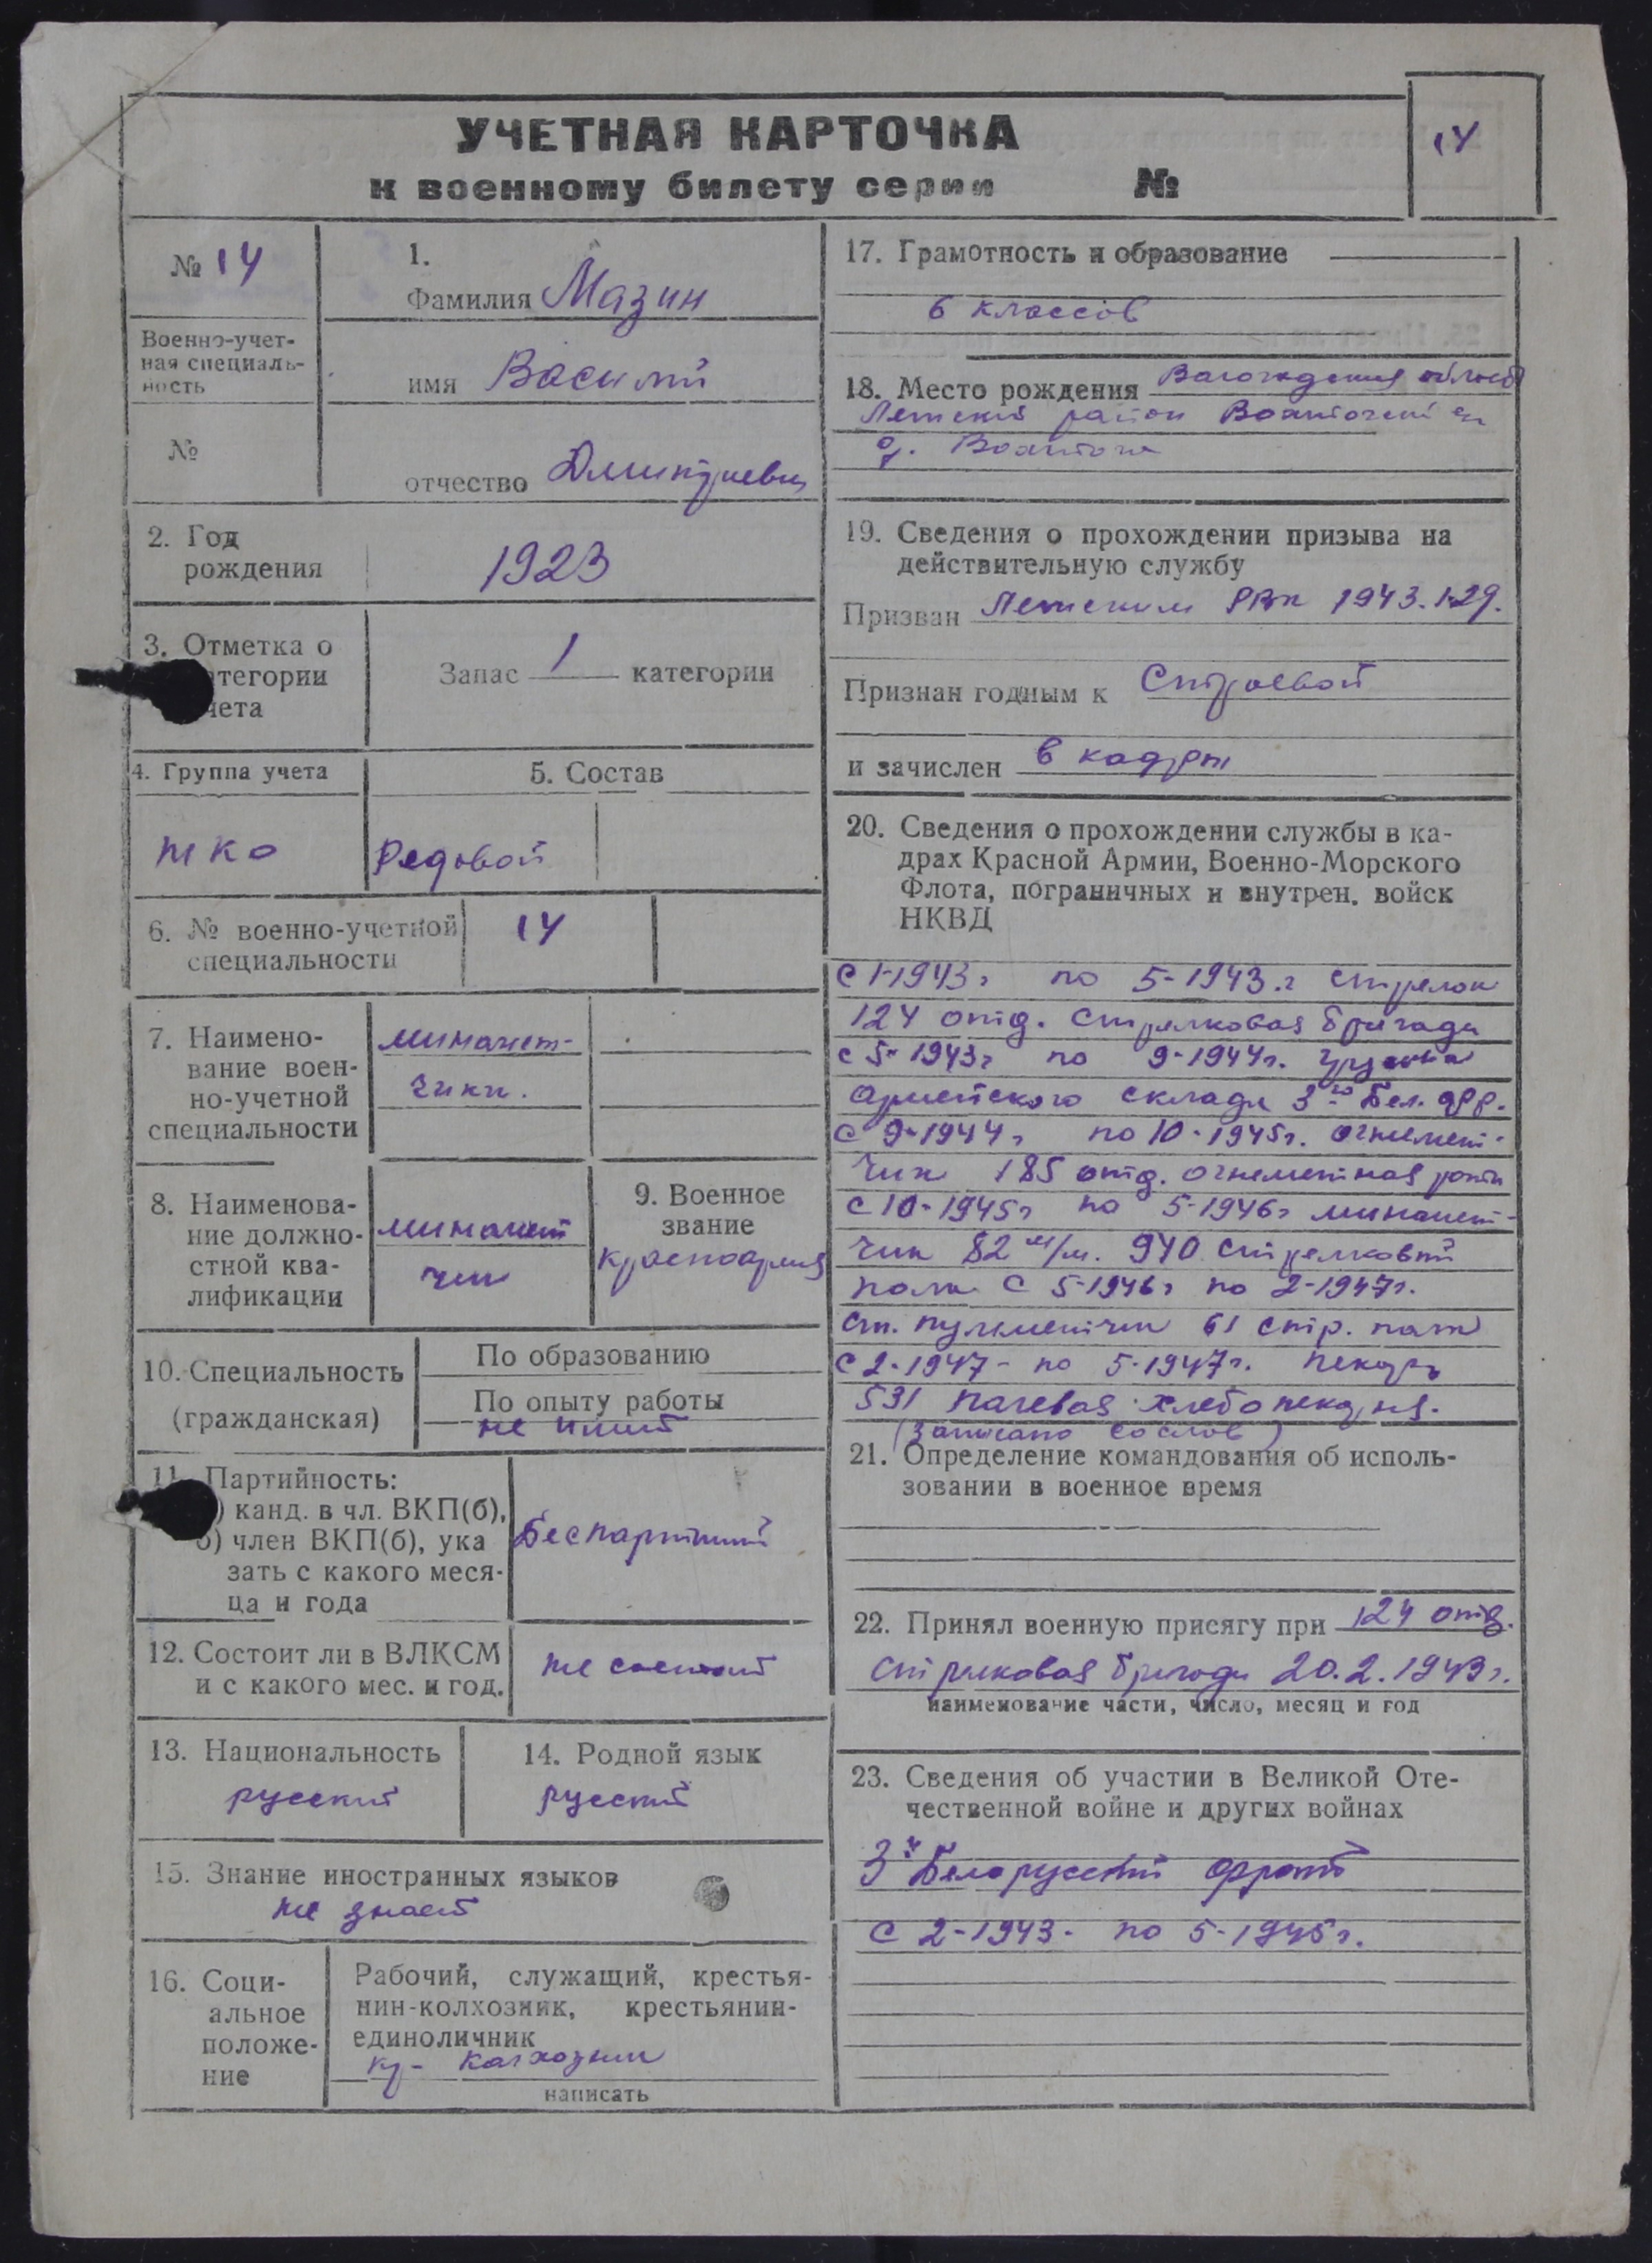 УЧЕТНАЯ КАРТОЧКА
к военному билету серии №
14
№ 14
Военно-учет-
ная специаль-
ность
№
1.
Фамилия Мазин
имя Василий
отчество Дмитриевич
2. Год
рождения
1923
3. Отметка о
атегории
чета
Запас 1 категории
4. Группа учета
5. Состав
Рядовой
6. № военно-учетной
специальности
14
7. Наимено-
вание воен-
но-учетной
специальности
миномет-
чики.
8. Наименова-
ние должно-
стной ква-
лификации
миномет
чик
9. Военное
звание
красноармеец
10. Специальность
(гражданская)
По образованию
По опыту работы
не имеет
11. Партийность:
) канд. в чл. ВКП(б),
б) член ВКП(б), ука
зать с какого меся-
ца и года
Беспартийный
12. Состоит ли в ВЛКСМ
и с какого мес. и год.
не состоит
13. Национальность
русский
14. Родной язык
русский
15. Знание иностранных языков
не знает
16. Соци-
альное
положе-
ние
Рабочий, служащий, крестья-
нин-колхозник, крестьянин-
единоличник
кр- колхозник
написать
17. Грамотность и образование
6 классов
18. Место рождения Вологодская область
район
д.
19. Сведения о прохождении призыва на
действительную службу
Призван РВК 1943.1.29.
Признан годным к Строевой
и зачислен в кадры
20. Сведения о прохождении службы в ка-
драх Красной Армии, Военно-Морского
Флота, пограничных и внутрен. войск
НКВД
с 1-1943г по 5-1943.г стрелок
124 отд. Стрелковая бригада
с 5-1943г по 9-1944г. грузчик
армейского склада 3го Бел. фр.
с 9-1944г по 10-1945г. огнемет-
чик 185 отд. огнеметная рота
с 10-1945г по 5-1946г миномет-
чик 82 м/м. 940 стрелковый
полк с 5-1946г по 2-1947г.
ст. пулеметчик 61 стр. полк
с 2-1947- по 5-1947г. пекарь
531 полевая хлебопекарня.
(Записано со слов)
21. Определение командования об исполь-
зовании в военное время
22. Принял военную присягу при 124 отд.
стрелковая бригада 20.2.1943г.
наименование части, число, месяц и год
23. Сведения об участии в Великой Оте-
чественной войне и других войнах
3й Белорусский фронт
с 2-1943- по 5-1945г.